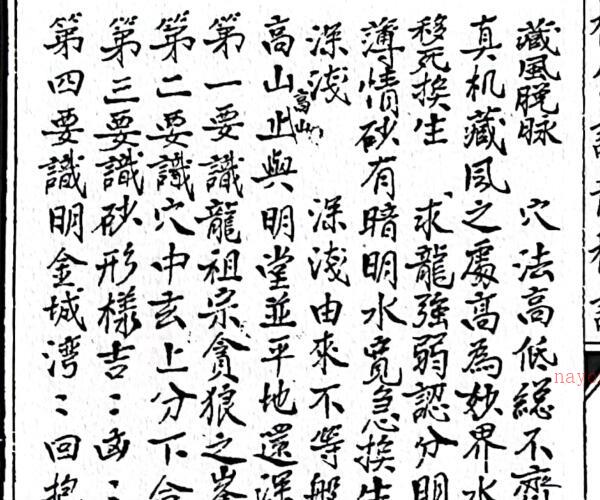 藏風脫脉　穴法高低總不齊
真机藏風之處高為妙界水
移死挨生　求龍強弱認分明
薄情砂有暗明水寬急挨生
深淺　深淺由來不等般
高山
高山止與明堂並平地還深
第一要識龍祖宗貪狼之峯
第二要識穴中玄上分下合
第三要識砂形樣吉〻凶〻
第四要識明金城湾〻回抱
nayo